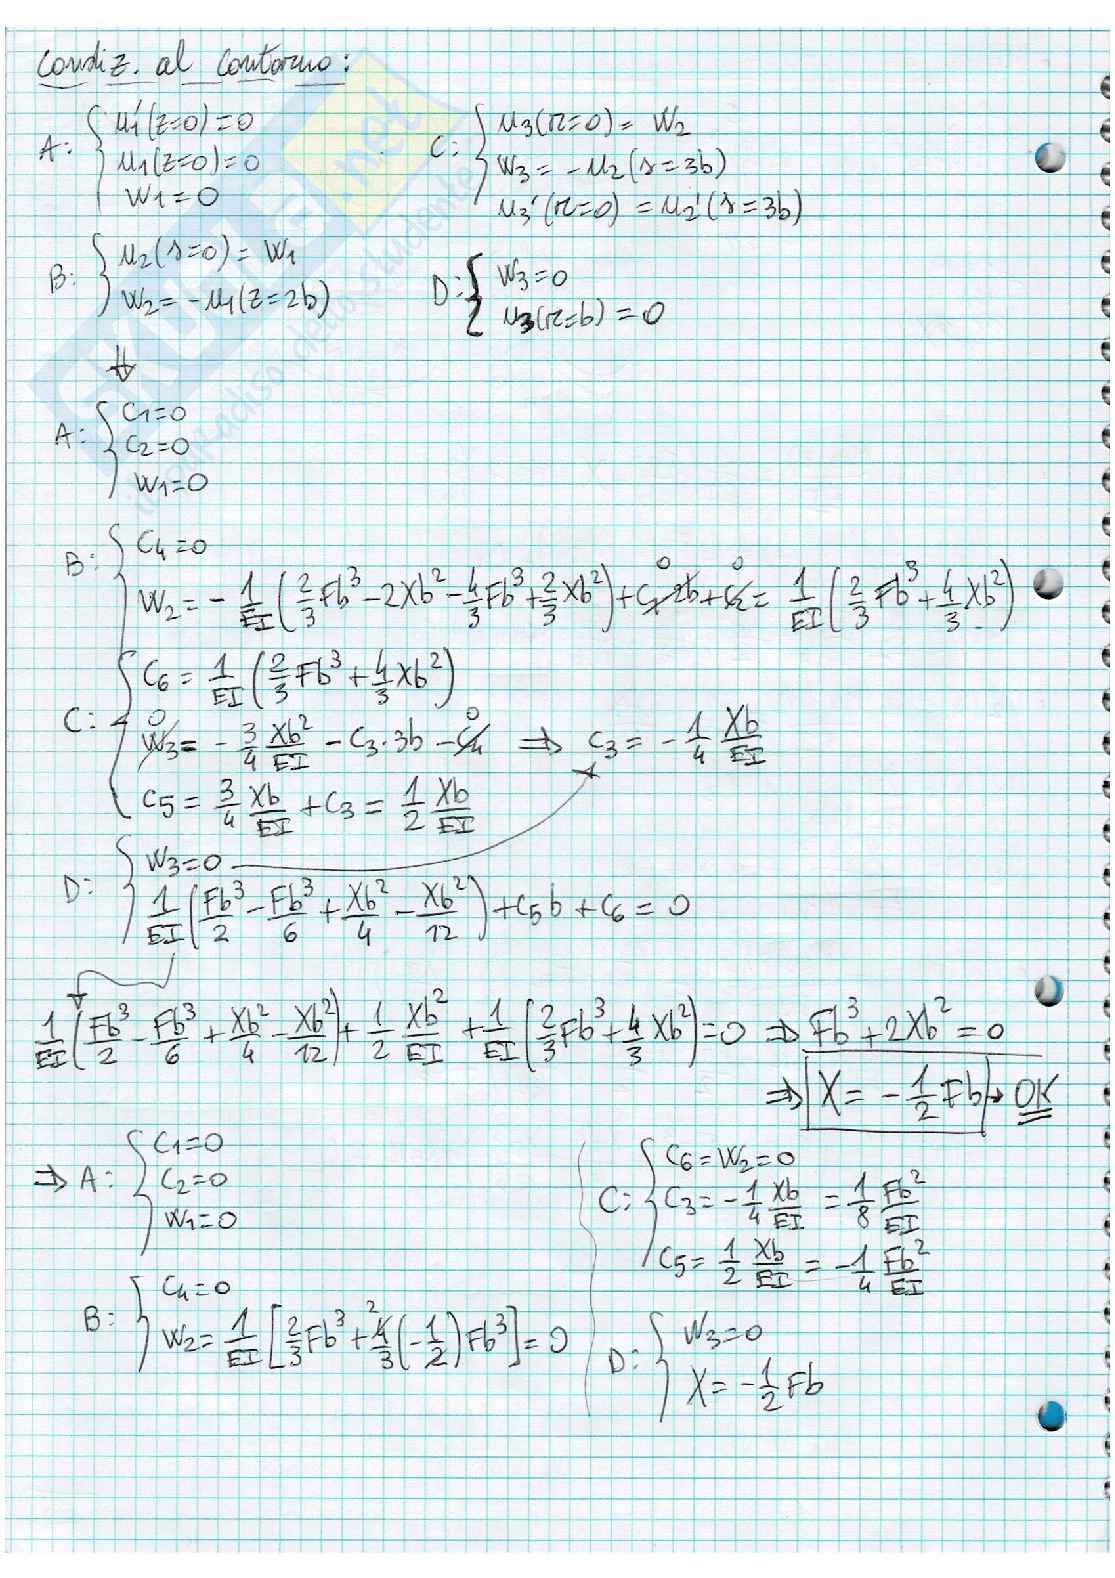 Condiz. al contorno:
A: { u1'(z=0)=0
u1(z=0)=0
w1=0
B: { u2(s=0)= w1
w2= -u1(z=2b)
C: { u3(r=0)= w2
w3= -u2(s=3b)
u3'(r=0) = u2'(s=3b)
D: { w3=0
u3(r=b)=0
⇓
A: { C1=0
C2=0
w1=0
B: { C4=0
w2= -1/EI (2/3 Fb³ - 2Xb² - 4/3 Fb³ + 2/3 Xb²) + C1 2b + C2 = 1/EI (2/3 Fb³ + 4/3 Xb²)
0 0
C: { C6 = 1/EI (2/3 Fb³ + 4/3 Xb²)
0 w3= - 3/4 Xb²/EI - C3·3b - C4 0 ⇒ C3 = - 1/4 Xb/EI
C5 = 3/4 Xb/EI + C3 = 1/2 Xb/EI
D: { w3=0
1/EI (Fb³/2 - Fb³/6 + Xb²/4 - Xb²/12) + C5 b + C6 = 0
1/EI (Fb³/2 - Fb³/6 + Xb²/4 - Xb²/12) + 1/2 Xb²/EI + 1/EI (2/3 Fb³ + 4/3 Xb²) = 0 ⇒ Fb³ + 2Xb² = 0
⇒ X = - 1/2 Fb → OK
⇒ A: { C1=0
C2=0
w1=0
B: { C4=0
w2 = 1/EI [2/3 Fb³ + 2 4/3 (-1/2) Fb³] = 0
C: { C6 = w2 = 0
C3 = - 1/4 Xb/EI = 1/8 Fb²/EI
C5 = 1/2 Xb/EI = - 1/4 Fb²/EI
D: { w3=0
X = - 1/2 Fb